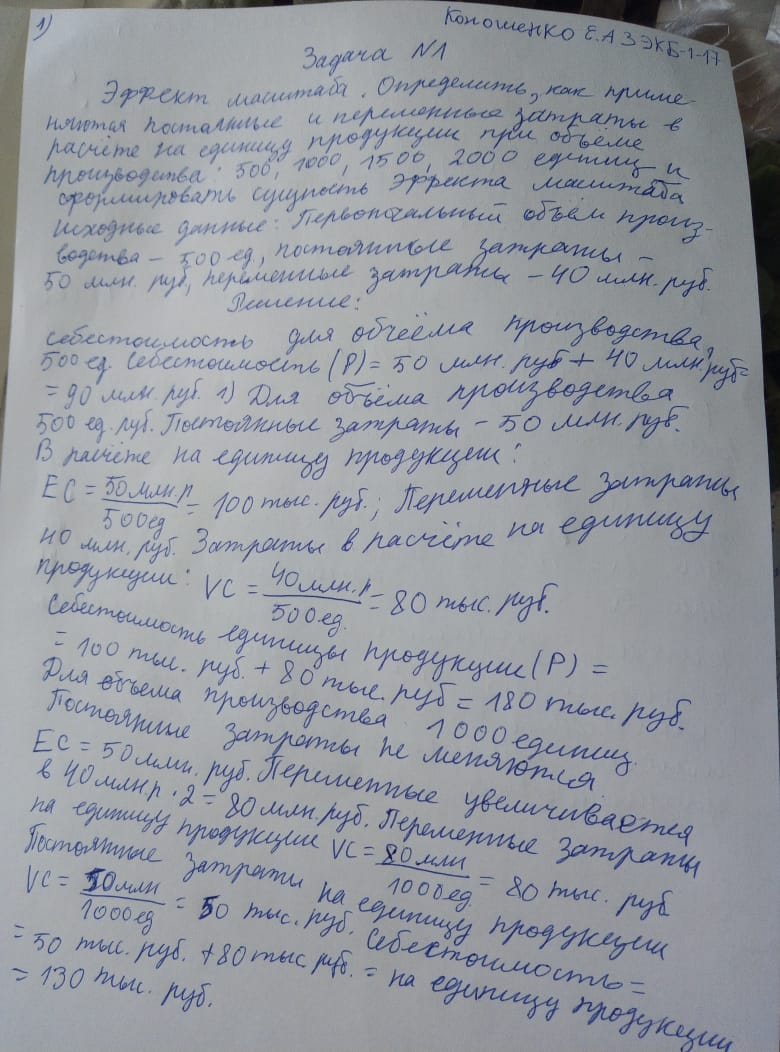 1)
Коношенко Е.А ЗЭКБ-1-17
Задача N1
Эффект масштаба. Определить, как приме-
няются постаянные и переменные затраты в
расчёте на единицу продукции при объёме
производства: 500, 1000, 1500, 2000 единиц и
сформировать сущность эффекта масштаба
Исходные данные: Первоначальный объём произ-
водства – 500 ед, постоянные затраты –
50 млн. руб, переменные затраты – 40 млн. руб.
Решение:
Себестоимость для объёма производства
500 ед. Себестоимость (P) = 50 млн. руб + 40 млн. руб =
= 90 млн. руб. 1) Для объёма производства
500 ед. руб. Постоянные затраты – 50 млн. руб.
В расчёте на единицу продукции:
EC = 50 млн. р / 500 ед = 100 тыс. руб.; Переменные затраты
40 млн. руб. Затраты в расчёте на единицу
продукции: VC = 40 млн. р / 500 ед. = 80 тыс. руб.
Себестоимость единицы продукции (P) =
= 100 тыс. руб. + 80 тыс. руб = 180 тыс. руб.
Для объема производства 1000 единиц.
Постоянные затраты не меняются
EC = 50 млн. руб. Переменные увеличивается
в 40 млн. р · 2 = 80 млн. руб. Переменные затраты
на единицу продукции VC = 80 млн / 1000 ед = 80 тыс. руб
Постоянные затраты на единицу продукции
VC = 50 млн / 1000 ед = 50 тыс. руб. Себестоимость =
= 50 тыс. руб. + 80 тыс. руб. = на единицу продукции
= 130 тыс. руб.